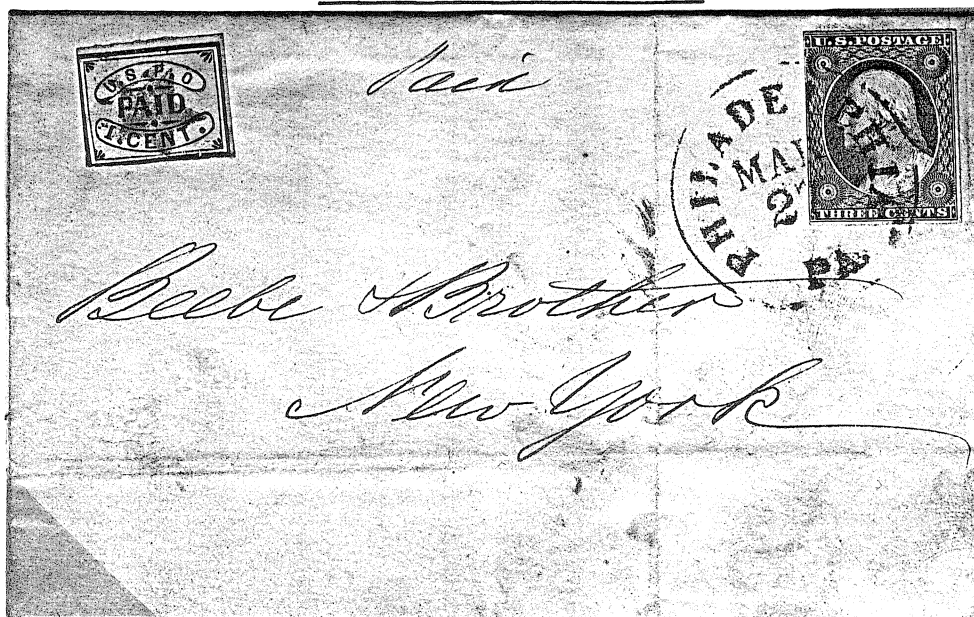 U.S.P.O
PAID
1.CENT.
Paid
U.S.POSTAGE
THREE CENTS
PHILADE
PA
Beebe & Brother
New York